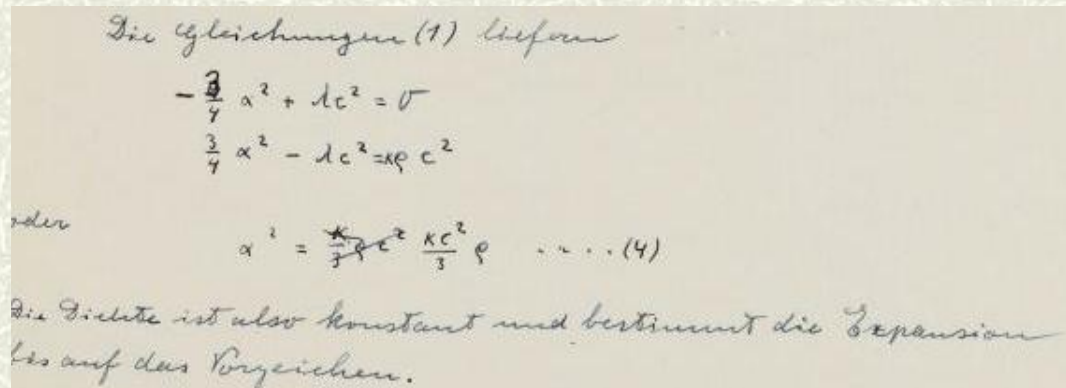 Die Gleichungen (1) liefern
- 3/4 α² + λc² = 0
3/4 α² - λc² = κρc²
oder
α² = κ/3 ρc² κc²/3 ρ .... (4)
Die Dichte ist also konstant und bestimmt die Expansion
bis auf das Vorzeichen.